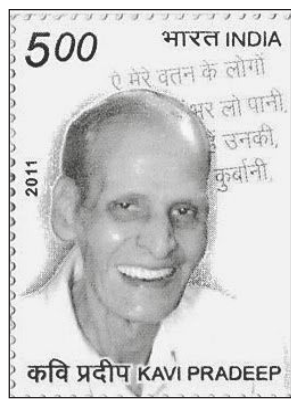 5.00 भारत INDIA
ऐ मेरे वतन के लोगों
भर लो पानी,
उनकी,
कुर्बानी,
2011
कवि प्रदीप KAVI PRADEEP